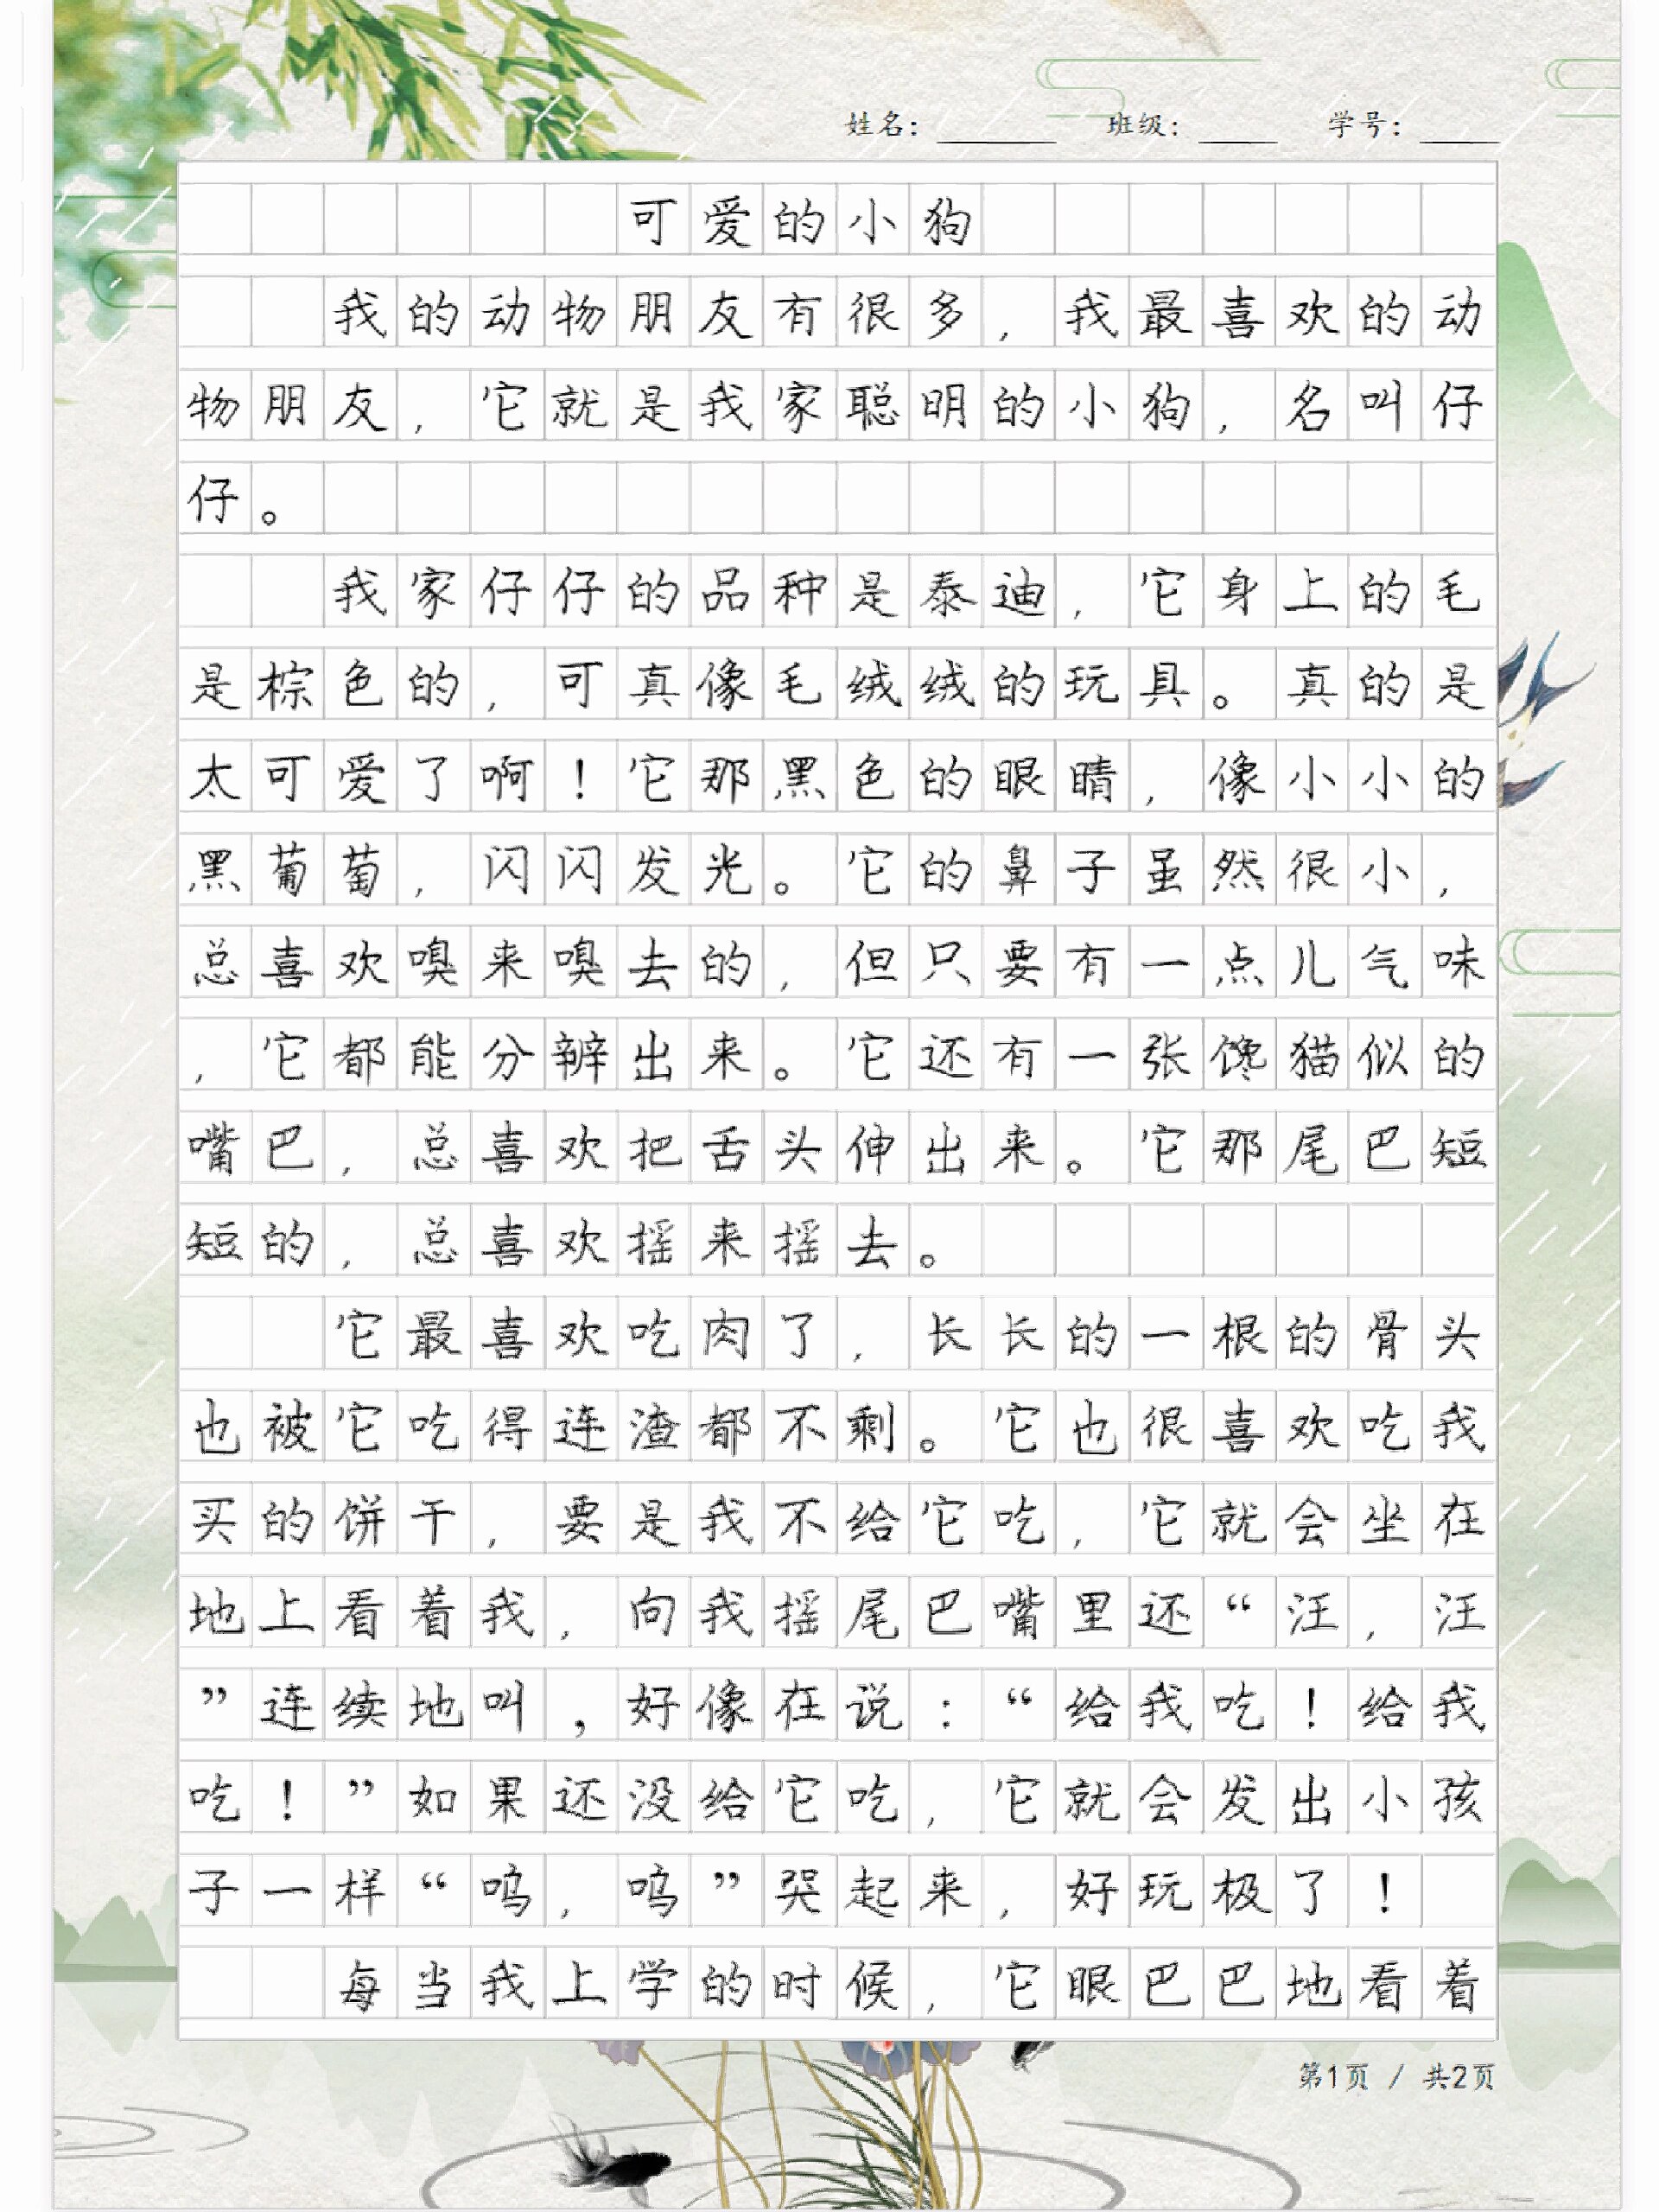 姓名：  班级：  学号：
可爱的小狗
我的动物朋友有很多，我最喜欢的动
物朋友，它就是我家聪明的小狗，名叫仔
仔。
我家仔仔的品种是泰迪，它身上的毛
是棕色的，可真像毛绒绒的玩具。真的是
太可爱了啊！它那黑色的眼睛，像小小的
黑葡萄，闪闪发光。它的鼻子虽然很小，
总喜欢嗅来嗅去的，但只要有一点儿气味
，它都能分辨出来。它还有一张馋猫似的
嘴巴，总喜欢把舌头伸出来。它那尾巴短
短的，总喜欢摇来摇去。
它最喜欢吃肉了，长长的一根的骨头
也被它吃得连渣都不剩。它也很喜欢吃我
买的饼干，要是我不给它吃，它就会坐在
地上看着我，向我摇尾巴嘴里还“汪，汪
”连续地叫，好像在说：“给我吃！给我
吃！”如果还没给它吃，它就会发出小孩
子一样“呜，呜”哭起来，好玩极了！
每当我上学的时候，它眼巴巴地看着
第1页 / 共2页